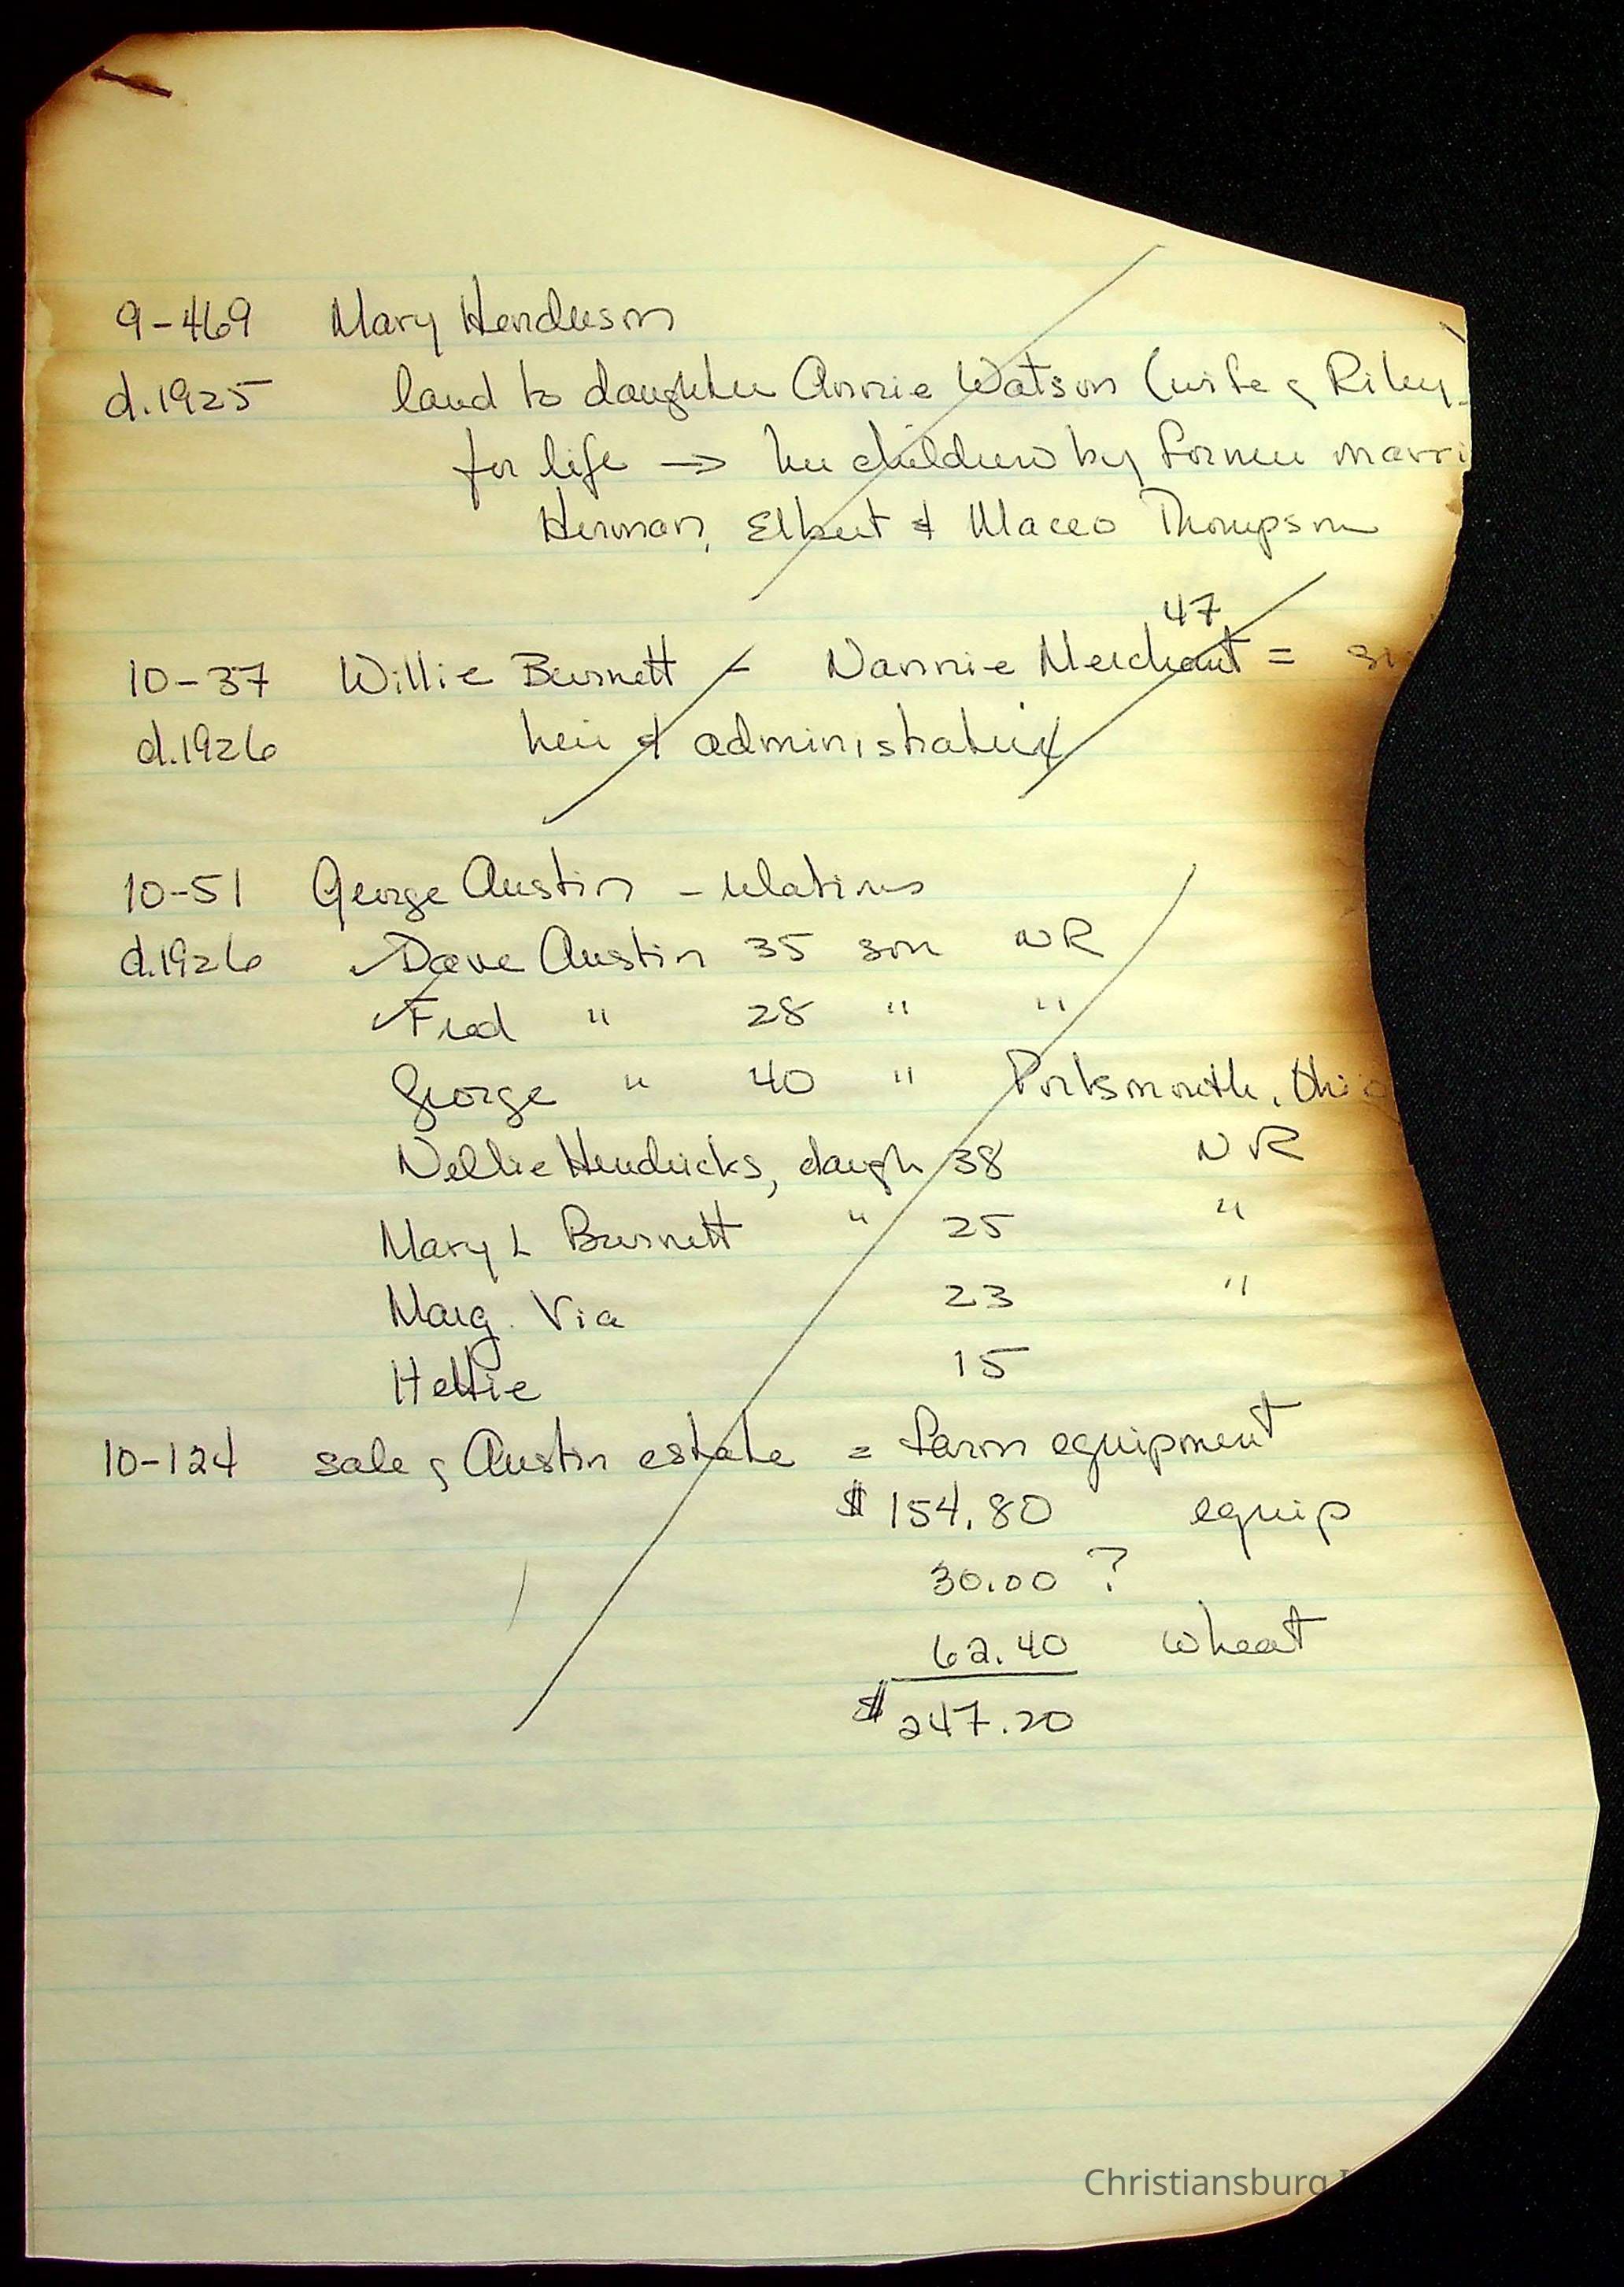 9-469 Mary Henderson
d.1925 land to daughter Annie Watson (wife of Riley
for life → her children by former marri
Herman, Elbert & Maceo Thompson
47
10-37 Willie Burnett - Nannie Merchant =
d.1926 heir & administratrix
10-51 George Austin - relatives
d.1926 ✓ Dave Austin 35 son NR
✓ Fred " 28 " "
George " 40 " Portsmouth, Ohio
Nellie Hendricks, daugh 38 NR
Mary L Burnett " 25 "
Marg. Via 23 "
Hettie 15
10-124 sale of Austin estate = farm equipment
$ 154.80 equip
30.00 ?
62.40 wheat
$ 247.20
Christiansburg